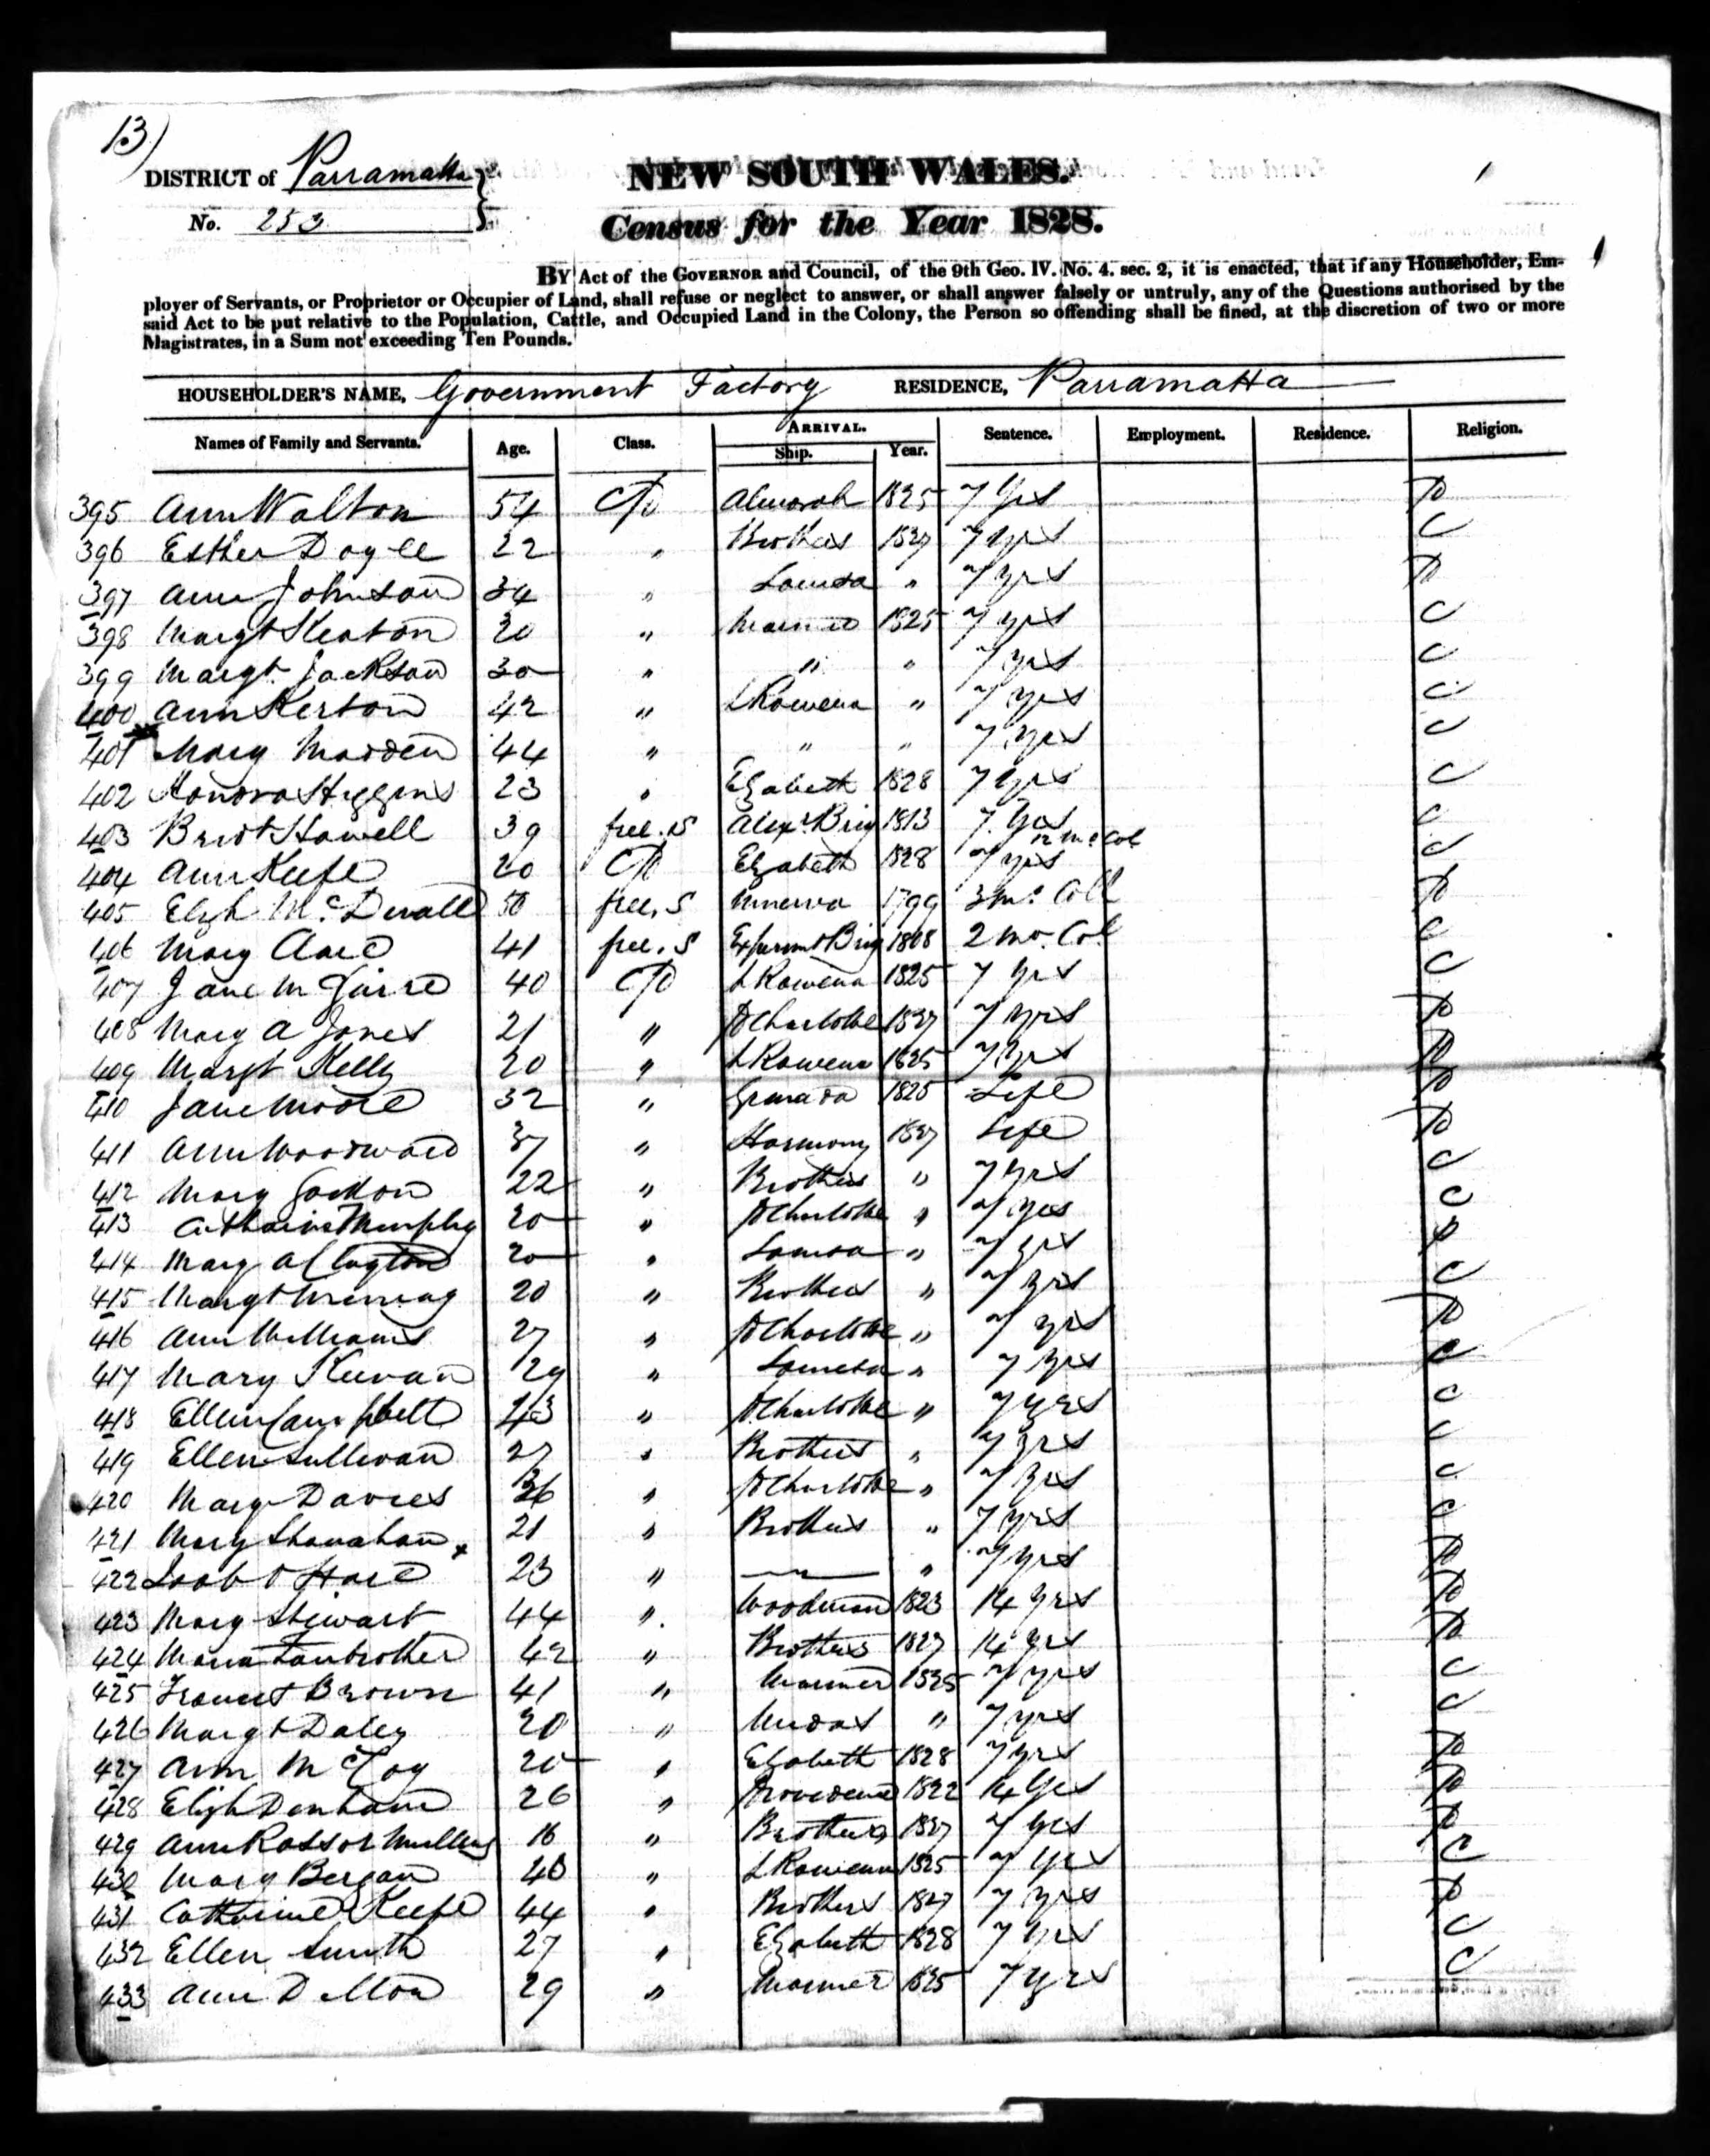 13)
DISTRICT of Parramatta
No. 253
NEW SOUTH WALES.
Census for the Year 1828.
BY Act of the GOVERNOR and Council, of the 9th Geo. IV. No. 4. sec. 2, it is enacted, that if any Householder, Em-
ployer of Servants, or Proprietor or Occupier of Land, shall refuse or neglect to answer, or shall answer falsely or untruly, any of the Questions authorised by the
said Act to be put relative to the Population, Cattle, and Occupied Land in the Colony, the Person so offending shall be fined, at the discretion of two or more
Magistrates, in a Sum not exceeding Ten Pounds.
HOUSEHOLDER'S NAME, Government Factory RESIDENCE, Parramatta
Names of Family and Servants. Age. Class. ARRIVAL. Ship. Year. Sentence. Employment. Residence. Religion.
395 Ann Walton 54 CP 1825 7 yrs P
396 Esther Doyle 22 " Brothers 1827 7 yrs C
397 Ann Johnson 34 " Louisa " 7 yrs P
398 Margt Keaton 30 " 1825 7 yrs C
399 Margt Jackson 30 " " " 7 yrs C
400 Ann Kerton 42 " L Rowena " 7 yrs C
401 Mary Madden 44 " " " 7 yrs C
402 Honora Higgins 23 " Elzabeth 1828 7 yrs C
403 Bridt Howell 39 free.S Alexr Brig 1813 7 yrs C
12 mo Col
404 Ann Keefe 20 CP Elzabeth 1828 7 yrs C
405 Elizh 50 free.S Minerva 1799 3 mo Coll P
406 Mary Clare 41 free.S Brig 1808 2 mo. Col C
407 Jane 40 CP L Rowena 1825 7 yrs C
408 Mary A Jones 21 " P Charlotte 1827 7 yrs P
409 Margt Kelly 20 " L Rowena 1825 7 yrs P
410 Jane Moore 32 " Grenada 1825 Life P
411 Ann Woodward 37 " Harmony 1827 Life P
412 Mary 22 " Brothers " 7 yrs C
413 Catharine Murphy 20 " P Charlotte " 7 yrs C
414 Mary A Clayton 20 " Louisa " 7 yrs P
415 Margt 20 " Brothers " 7 yrs C
416 Ann Williams 27 " P Charlotte " 7 yrs P
417 Mary Keevan 29 " Louisa " 7 yrs C
418 Ellen Campbell 43 " P Charlotte " 7 yrs C
419 Ellen Sullivan 27 " Brothers " 7 yrs C
420 Mary Davies " P Charlotte " 7 yrs C
421 Mary Shanahan 21 " Brothers " 7 yrs C
422 23 " " 7 yrs P
423 Mary Stewart 44 " Woodman 1823 14 yrs P
424 Maria Fanbrother 42 " Brothers 1827 14 yrs P
425 Brown 41 " Mariner 1825 7 yrs C
426 Margt Daley 20 " Midas " 7 yrs C
427 Ann McCoy 20 " Elzabeth 1828 7 yrs P
428 Elizh Denham 26 " Providence 1822 14 yrs P
429 Ann Ross or Mullens 16 " Brothers 1827 7 yrs P
430 Mary Bergan 40 " L Rowena 1825 7 yrs C
431 Catharine Keefe 44 " Brothers 1827 7 yrs P
432 Ellen Smith 27 " Elzabeth 1828 7 yrs C
433 Ann Dalton 29 " Mariner 1825 7 yrs C